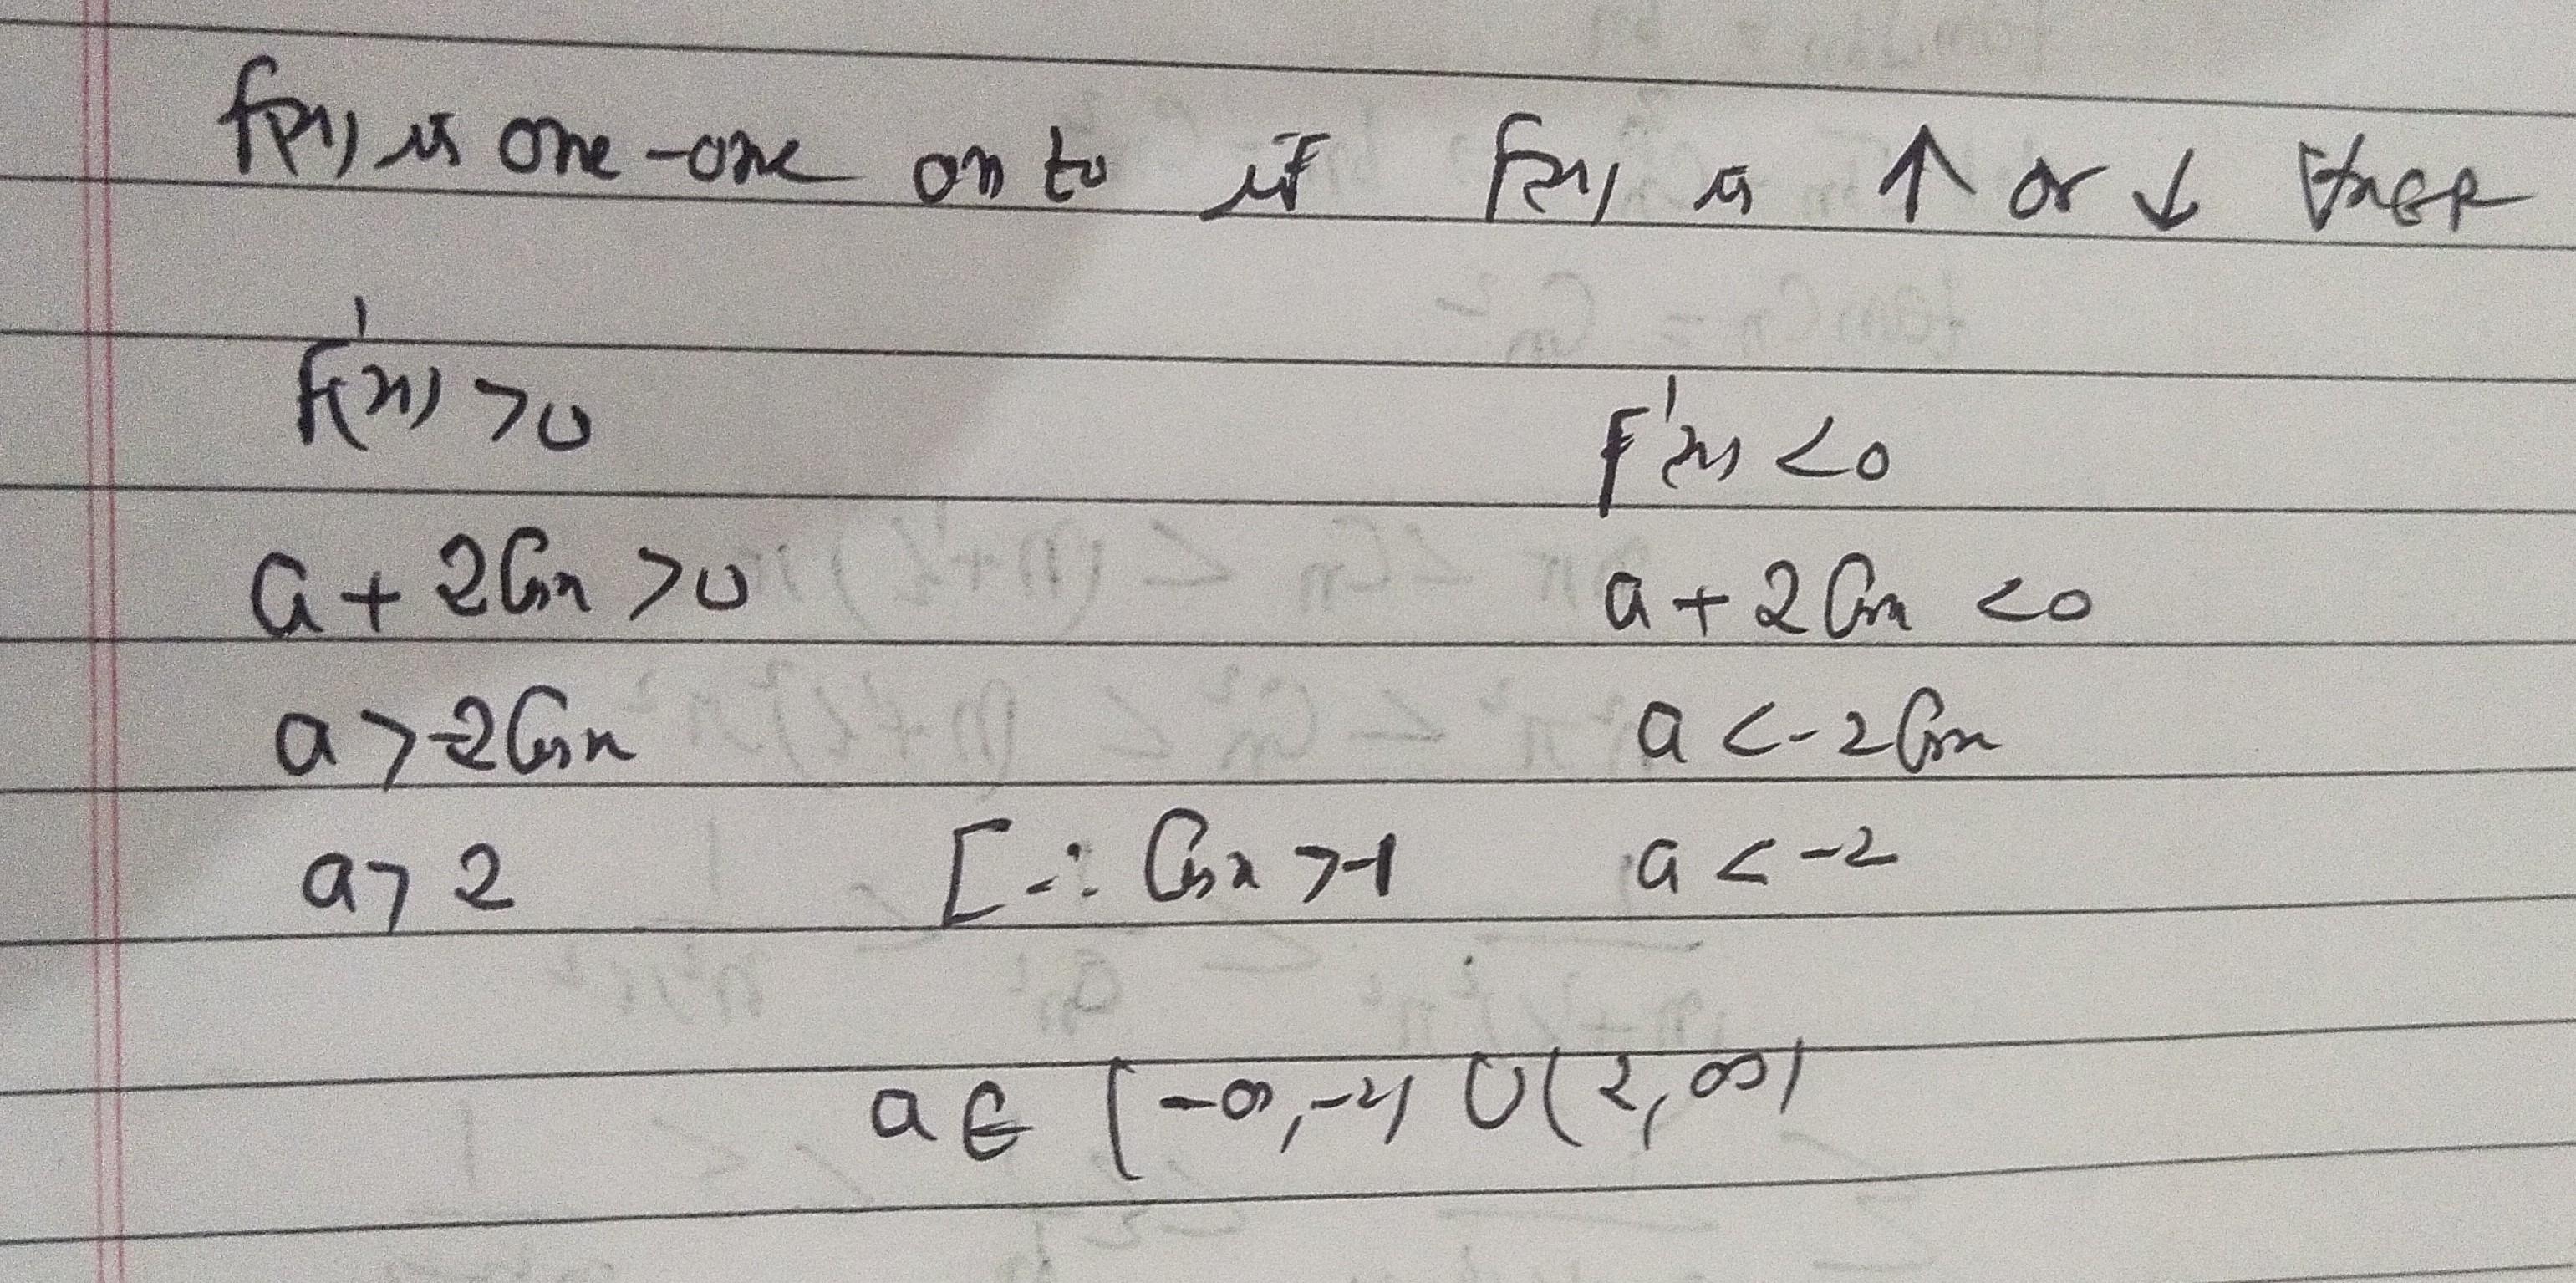 f(x) is one-one on to if f(x) is ↑ or ↓ ∀x∈R
f'(x) >0 f'(x) <0
a + 2Cosx >0 a + 2Cosx <0
a > -2Cosx a < -2Cosx
a > 2 [∴ Cosx >-1 a < -2
a ∈ (-∞,-2) ∪ (2,∞)